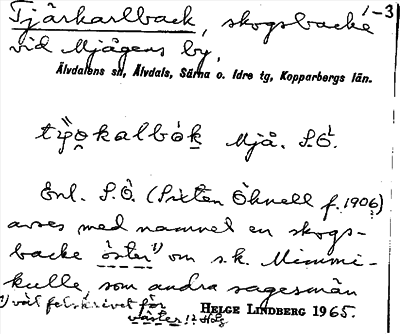 Tjärkarlback, skogsbacke 1-3
vid Mjågens by,
Älvdalens sn, Älvdals, Särna o. Idre tg, Kopparbergs län.
Mjå. S.Ö.
Enl. S.Ö. (Sixten Öhnell f. 1906)
avses med namnet en skogs-
backe öster¹) om s.k. Mimmi-
kulle, som andra sagesmän
¹) väl felskrivet för
väster
HELGE LINDBERG 1965.